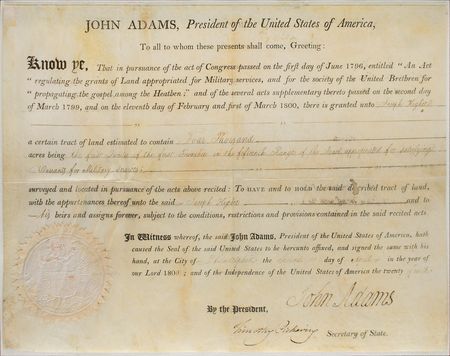 JOHN ADAMS, President of the United States of America,
To all to whom these presents shall come, Greeting:
Know ye, That in pursuance of the act of Congress passed on the first day of June 1796, entitled “An Act
“ regulating the grants of Land appropriated for Military services, and for the society of the United Brethren for
“ propagating the gospel among the Heathen;” and of the several acts supplementary thereto passed on the second day
of March 1799, and on the eleventh day of February and first of March 1800, there is granted unto Joseph
a certain tract of land estimated to contain Four Thousand
acres being the first Quarter of the first Township in the fifteenth Range of the tract appropriated for satisfying
Warrants for Military Services;
surveyed and located in pursuance of the acts above recited: To HAVE and to HOLD the said described tract of land,
with the appurtenances thereof unto the said Joseph and to
his heirs and assigns forever, subject to the conditions, restrictions and provisions contained in the said recited acts
In Witness whereof, the said John Adams, President of the United States of America, hath
caused the Seal of the said United States to be hereunto affixed, and signed the same with his
hand, at the City of Philadelphia the day of in the year of
our Lord 1800; and of the Independence of the United States of America the twenty
John Adams
By the President,
Timothy Pickering Secretary of State.